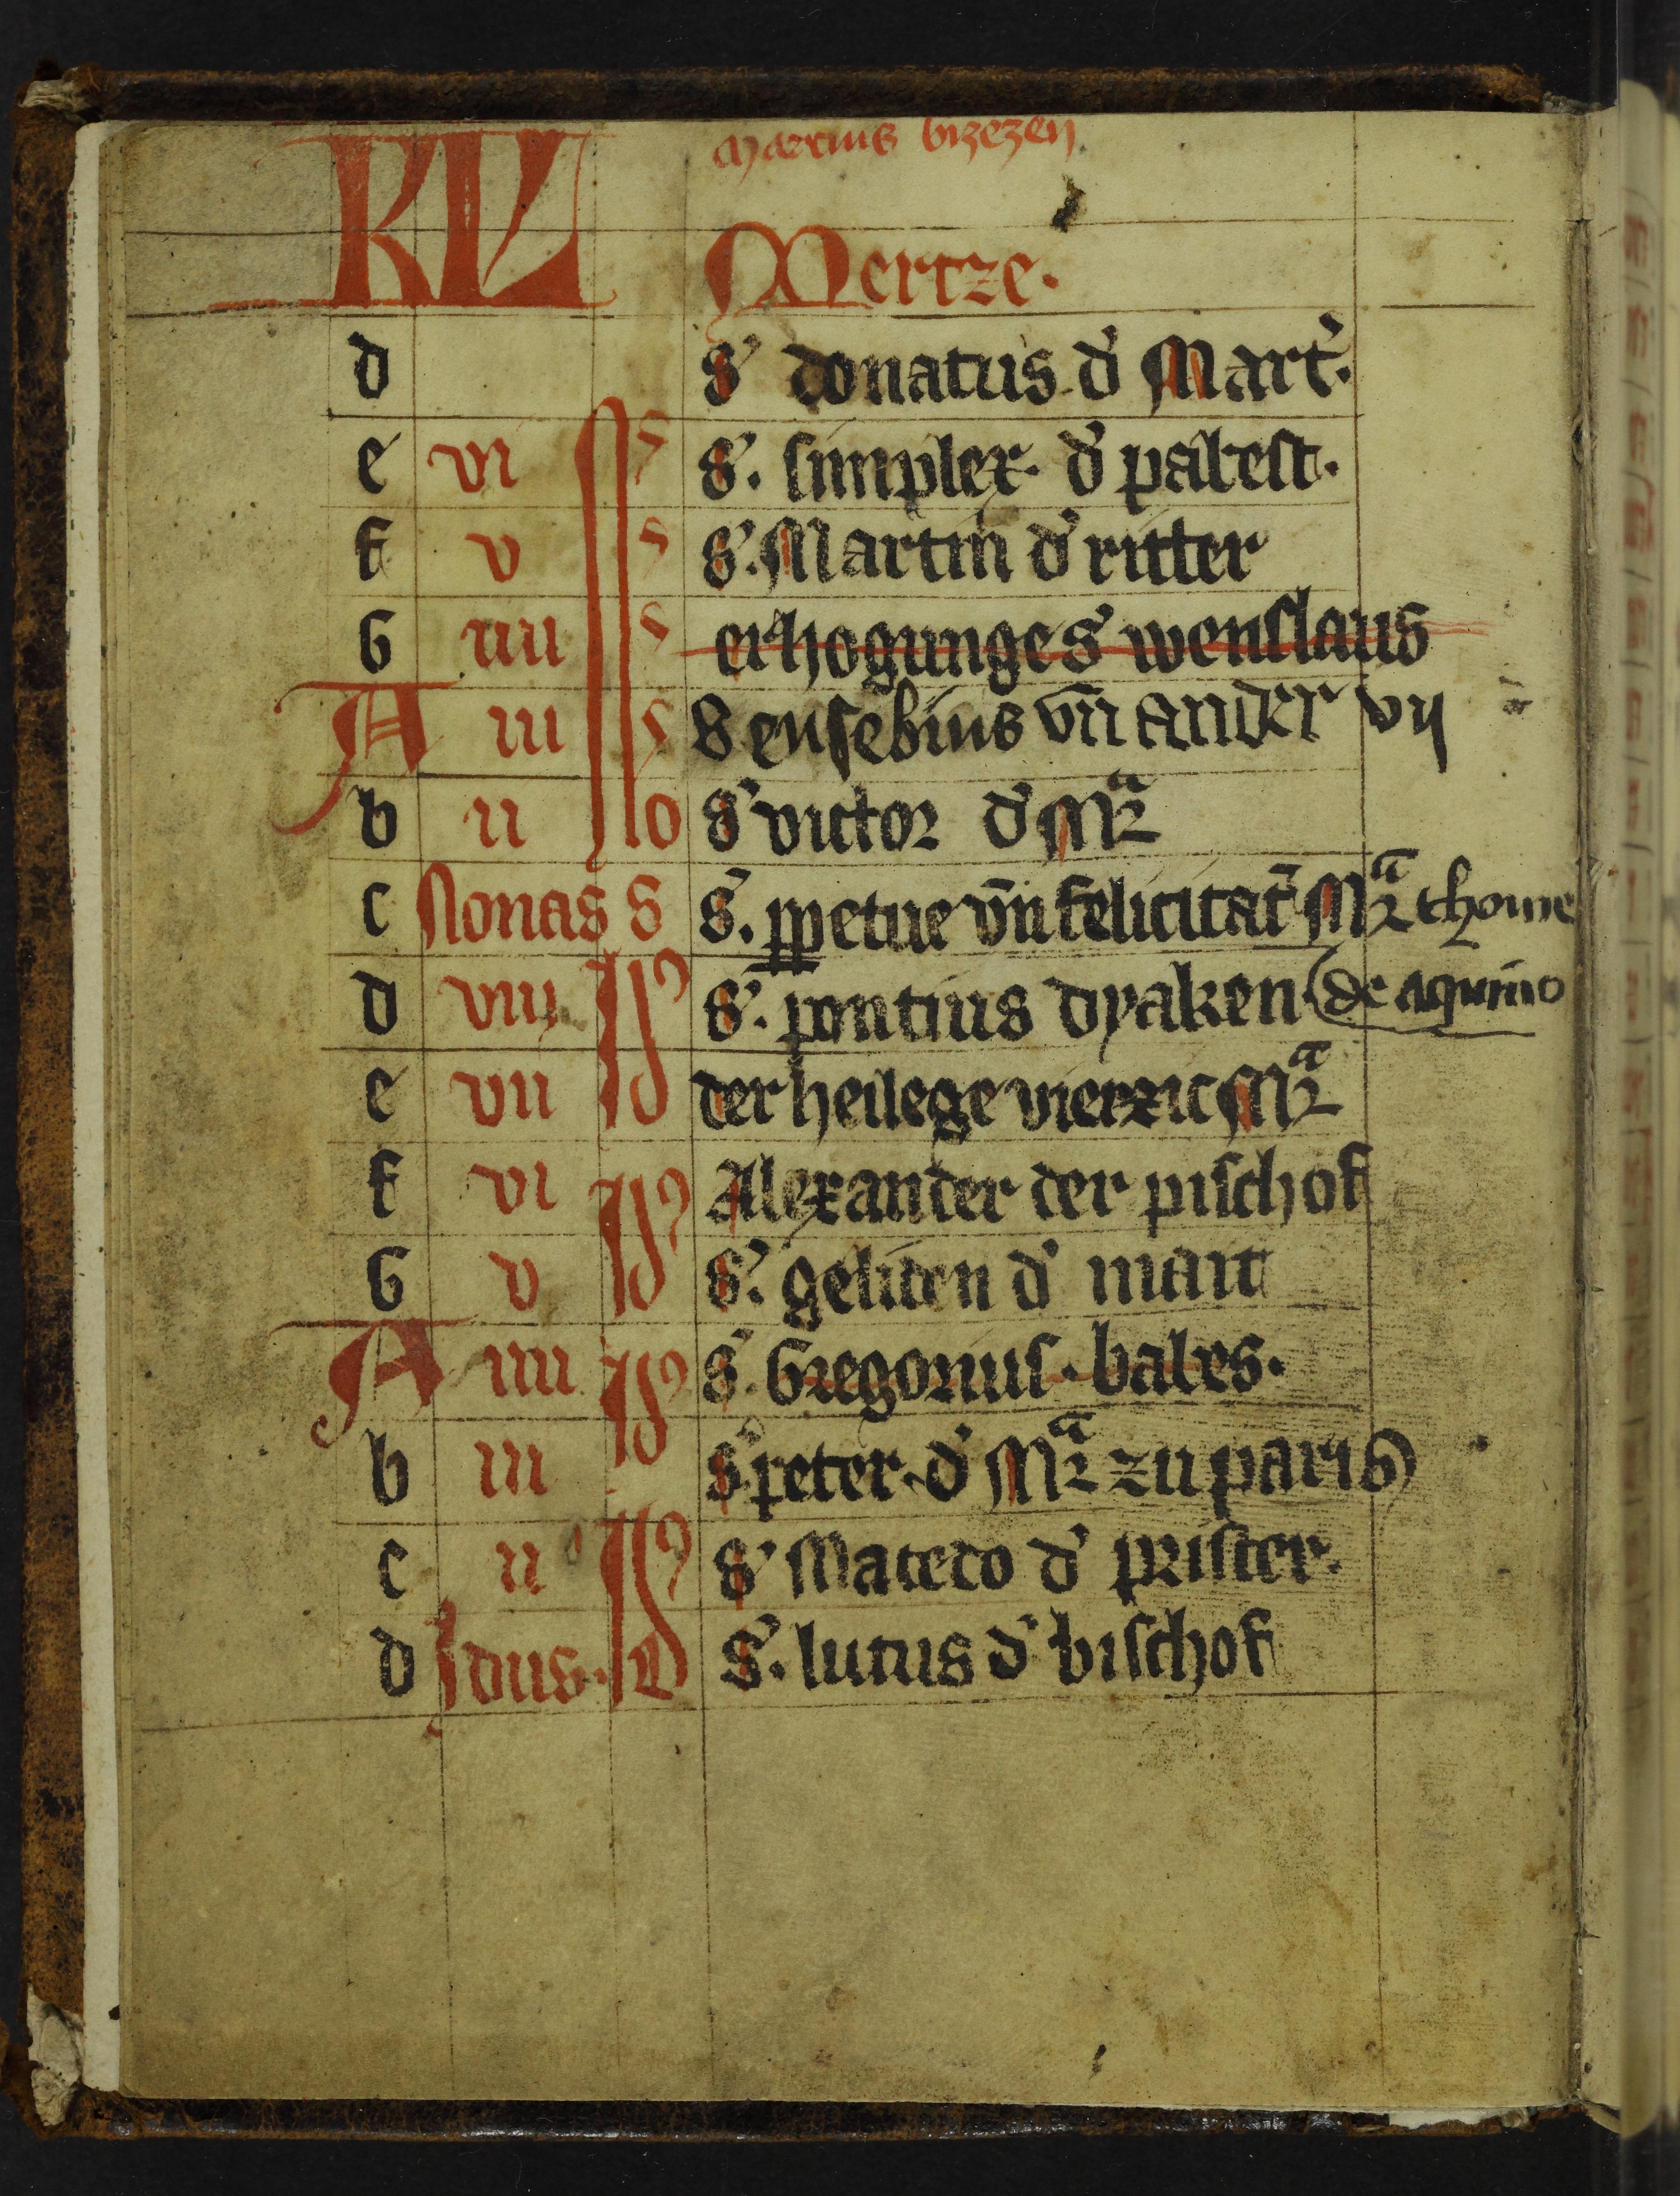 Marcius brzezen
KL Mertze.
d s' donatus d' Mart'.
e vi s s'. simplex. d' pabest.
f v s s'. Martin d' ritter
G iiii s erhogunge s' wenslaus
A iii s S eusebius vn̄ ander vij
b ii o s' victor d' Mr̄
c Nonas s s'. ꝑpetue vn̄ felicitat' Mr̄ thome
d viii s'. pontius dyaken de aquino
e vii der heilege vierzic Mr̄
f vi Alexander der pischof
G v s'. geliten d' mait
A iiii s'. Gregorius. babes.
b iii s' peter d' Mr̄ zu paris
c ii s' Matedo d' prister.
d Idus. s'. lutius d' bischof